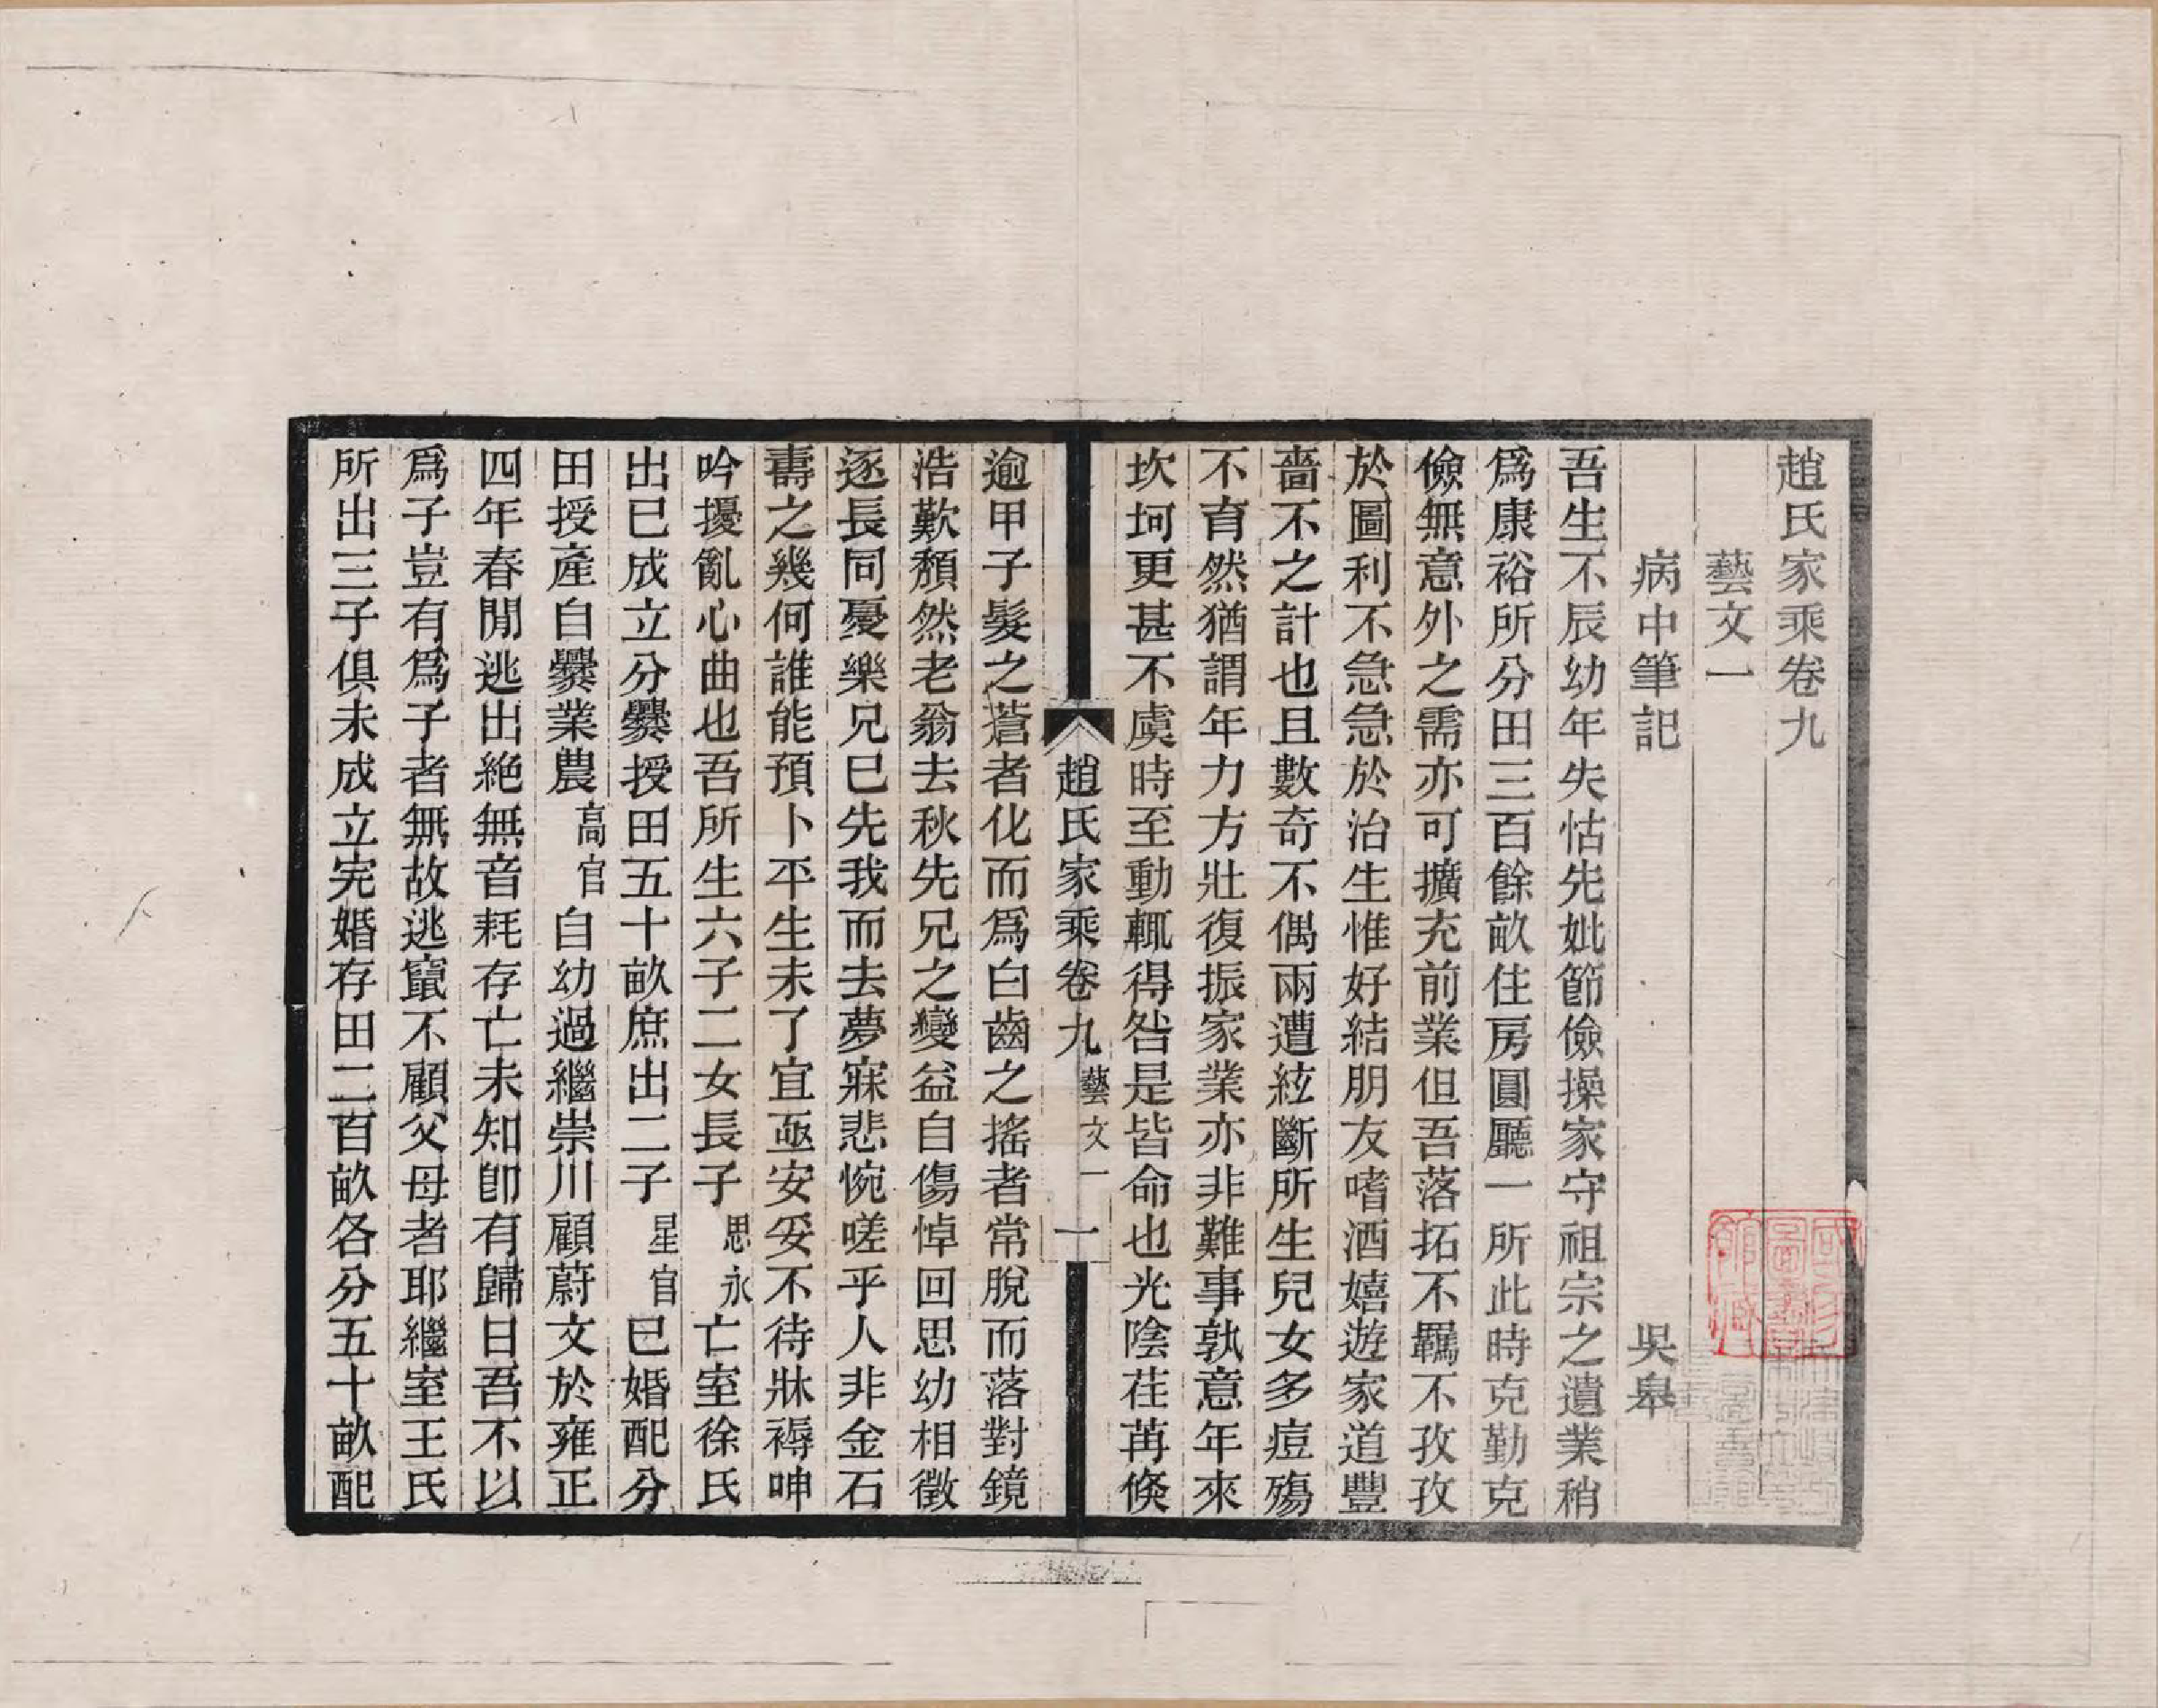 趙氏家乘卷九
藝文一
病中筆記　吳皋
吾生不辰幼年失怙先妣節儉操家守祖宗之遺業稍
爲康裕所分田三百餘畝住房圓廳一所此時克勤克
儉無意外之需亦可擴充前業但吾落拓不羈不孜孜
於圖利不急急於治生惟好結朋友嗜酒嬉遊家道豐
嗇不之計也且數奇不偶兩遭絃斷所生兒女多痘殤
不育然猶謂年力方壯復振家業亦非難事孰意年來
坎坷更甚不虞時至動輒得咎是皆命也光陰荏苒倏
趙氏家乘卷九 藝文一 一
逾甲子髮之蒼者化而爲白齒之搖者常脫而落對鏡
浩歎頹然老翁去秋先兄之變益自傷悼回思幼相徵
逐長同憂樂兄已先我而去夢寐悲惋嗟乎人非金石
壽之幾何誰能預卜平生未了宜亟安妥不待牀褥呻
吟擾亂心曲也吾所生六子二女長子思永亡室徐氏
出已成立分爨授田五十畝庶出二子星官已婚配分
田授產自爨業農高官自幼過繼崇川顧蔚文於雍正
四年春閒逃出絶無音耗存亡未知卽有歸日吾不以
爲子豈有爲子者無故逃竄不顧父母者耶繼室王氏
所出三子俱未成立完婚存田二百畝各分五十畝配